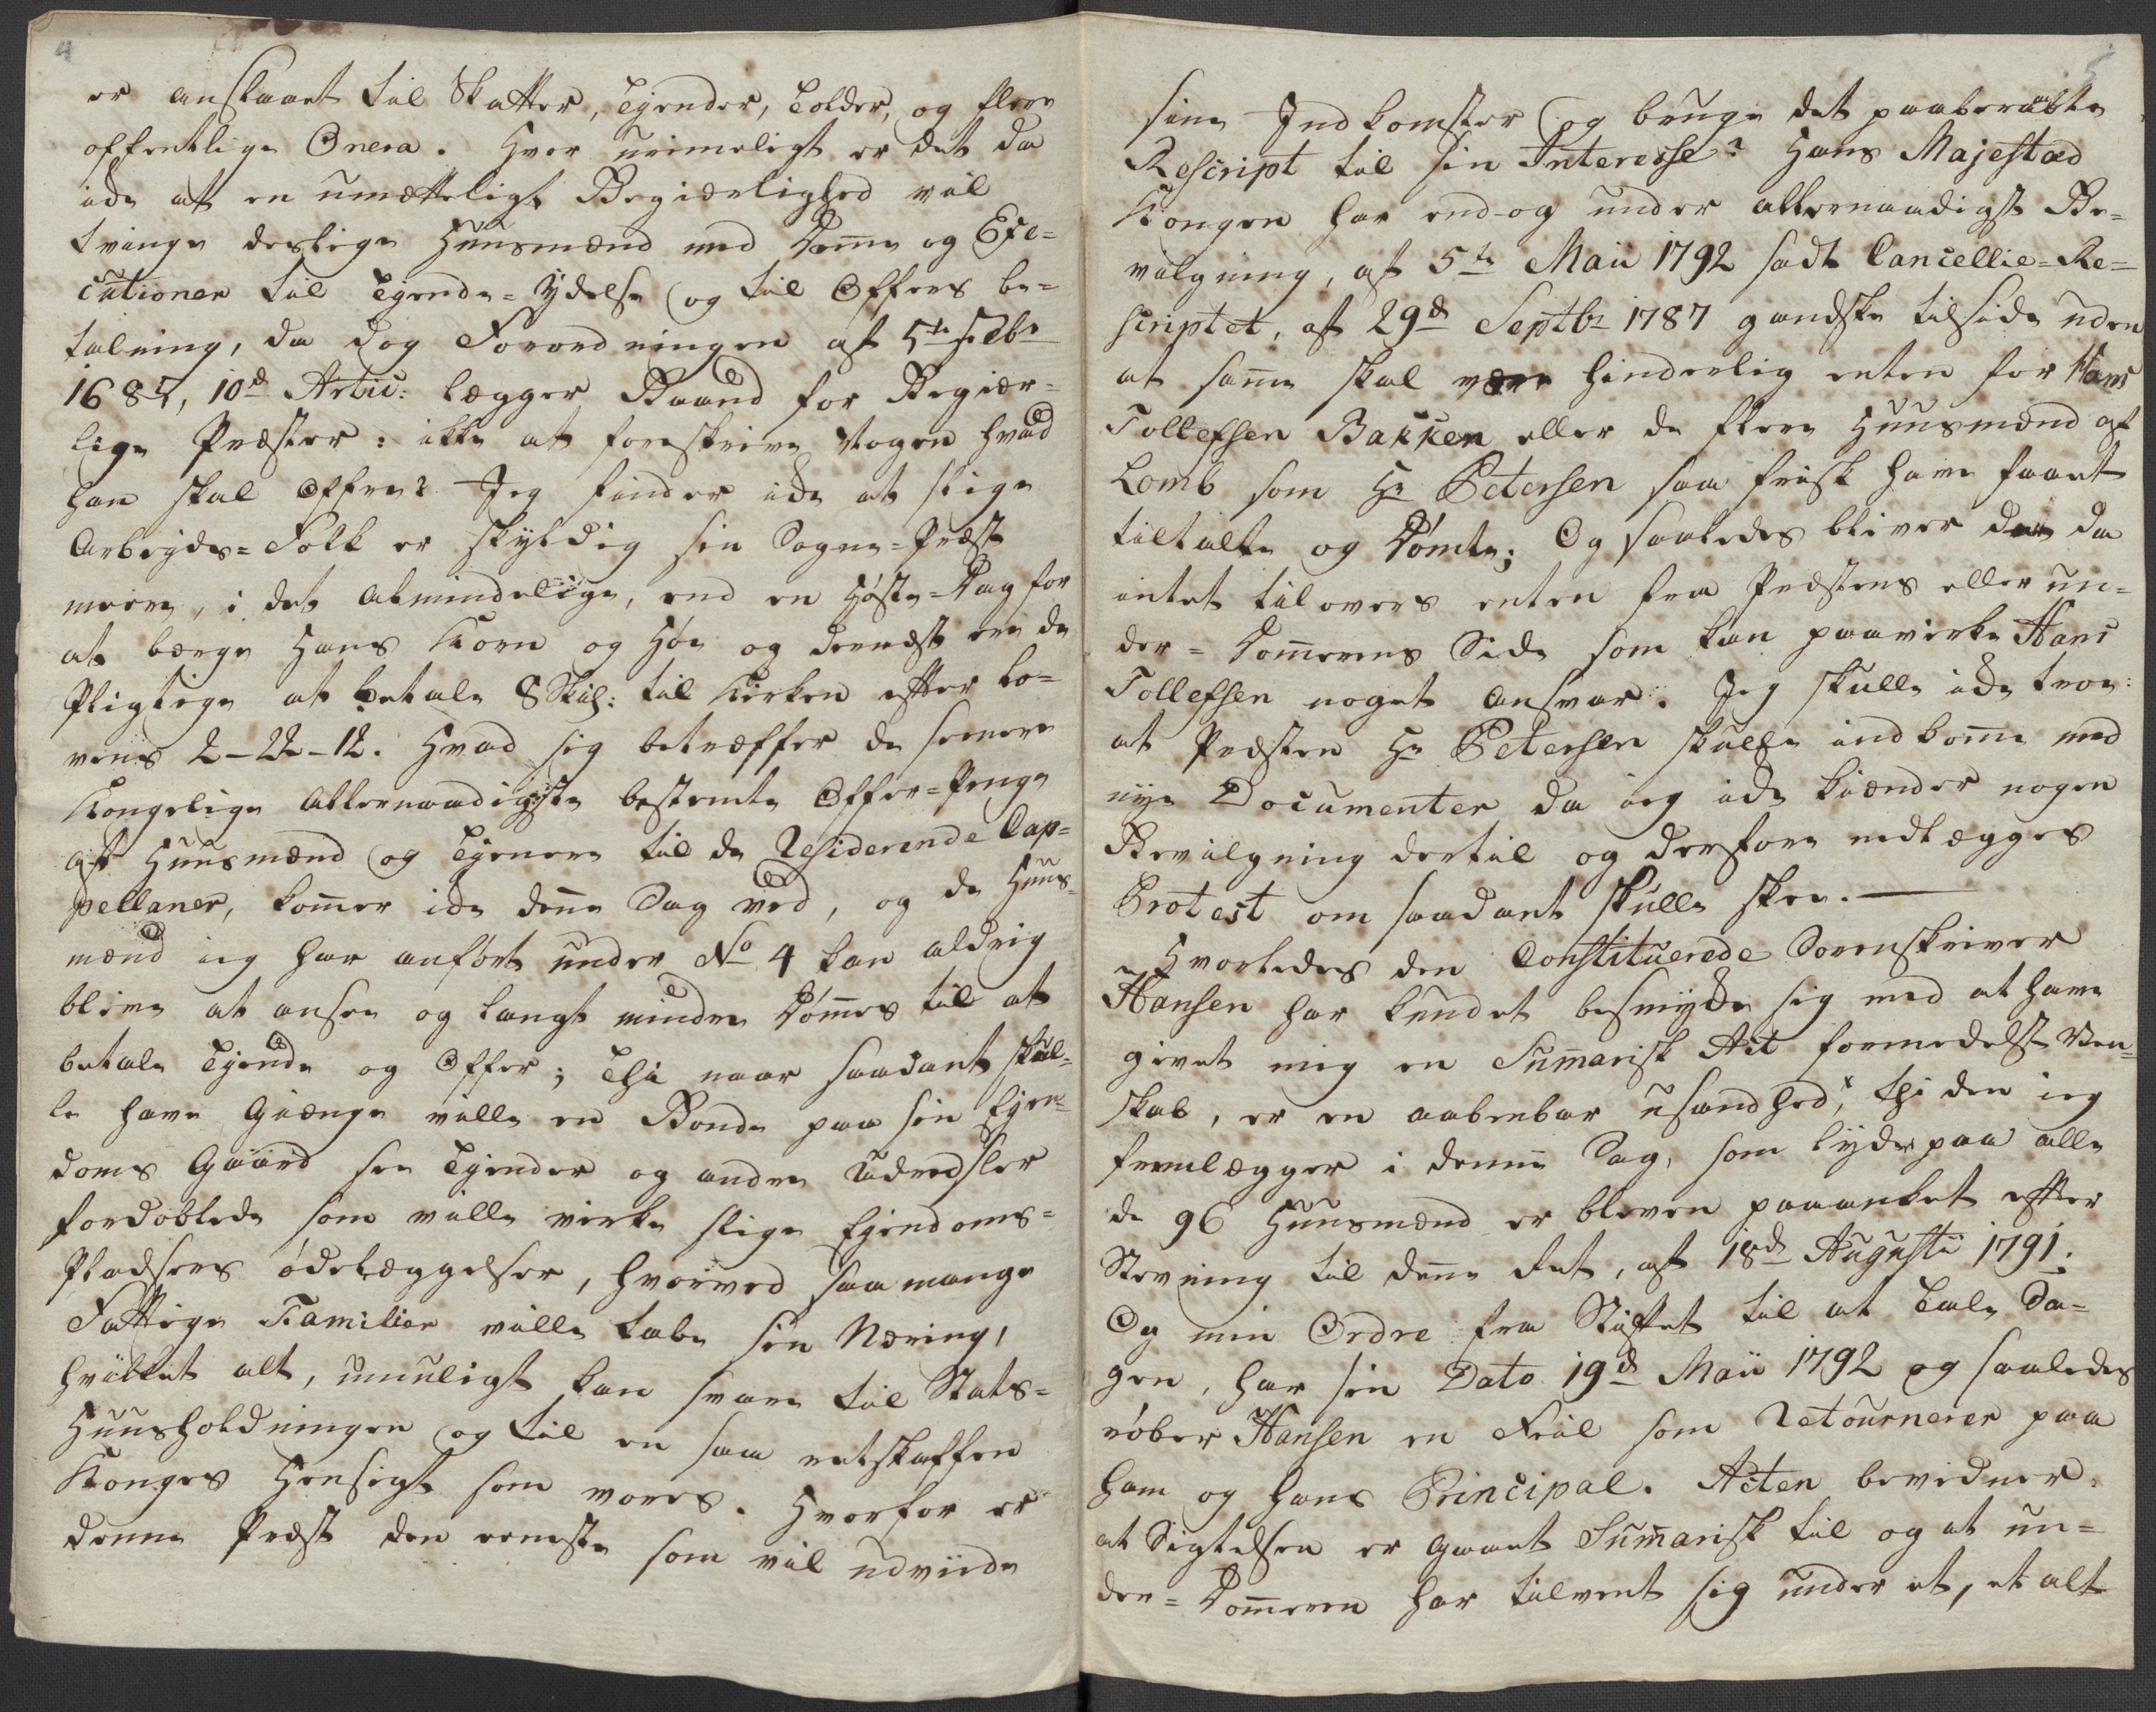 4
er anskaaret til Skatter, Tjender, Tolder, og flere
offentlige Onera. Hvor urimeligt er det da
icke at en umætteligt Begiærlighed vil
tvinge deslige Huusmænd med Domme og Exe=
cutioner til Tjende=Ydelse og til Offers be=
talning, da dog Forordningen af 5te Febr
1685, 10d Artic: lægger Baand for Begiær=
lige Præster: ikke at foreskrive Nogen hvad
han skal Offre? Jeg finder icke at slige
Arbeyds=Folk er skyldig sin Sogne=Præst
meere, i det Almindelige, end en Høste=Dag for
at bærge Hans Korn og Høe og dernæst ere de
Pligtige at betale 8 Skil: til Kirken efter Lo=
vens 2-22-12. Hvad sig betræffer de seenere
Kongelige Allernaadigste bestemte Offer=Penge
af Huusmænd og Tjenere til de Residerende Cap=
pellaner, kommer icke denne Sag ved, og de Huus=
mænd ieg har anført under No 4 kan aldrig
blive at ansee og langt mindre Dømmes til at
betale Tjende og Offer; Thi naar saadant skul=
le have Giænge ville en Bonde paa sin Ejen=
doms Gaard see Tjender og andre Udredsler
fordoblede som ville virke slige Ejendoms=
Pladsers ødelæggelser, hvorved saa mange
Fattige Familier ville tabe sin Næring,
hvilket alt, umuligt kan svare til Stats=
Huusholdningen og til en saa retskaffen
Konges Hensigt som vores. Hvorfor er
denne Præst den eeneste som vil udvide
5
sine Indkomster og bruge det paaberaabte
Rescript til sin Interesse? Hans Majestæd
Kongen har end-og under allernaadigst Be=
vilgning, af 5te Maii 1792 sadt Cancellie=Re=
scriptet, af 29d Septbr 1787 gandske tilside uden
at samme skal være hinderlig enten for Hans
Tollefsen Bakken eller de flere Huusmænd af
Lomb som Hr Petersen saa frisk have faaet
tiltalte og Dømte; Og saaledes bliver der da
intet tilovers enten fra Præstens eller un=
der=Dommerens Side som kan paavirke Hans
Tollefsen noget Ansvar. Jeg skulle icke troe:
at Præsten Hr Petersen skulle indkomme med
nye Documenter da ieg icke kiænder nogen
Bevilgning dertil og derfore nedlægges
Protest om saadant skulle skee.
Hvorledes den Constituerede Sorenskriver
Hansen har kundet besmykke sig med at have
givet mig en Summarisk Act formedelst Ven=
skab, er en aabenbar usandhed, thi den ieg
fremlægger i denne Sag, som lyder paa alle
de 96 Huusmænd er bleven paaanket efter
Stevning til denne Ret, af 18d Augustii 1791.
Og min Ordre fra Stiftet til at Tale Sa=
gen, har sin Dato 19d Maii 1792 og saaledes
røber Hansen en Feil som Retournerer paa
ham og hans Principal. Acten bevidner:
at Sigtelsen er gaaet Summarisk til og at un=
der=Dommeren har tilvent sig under et, et alt